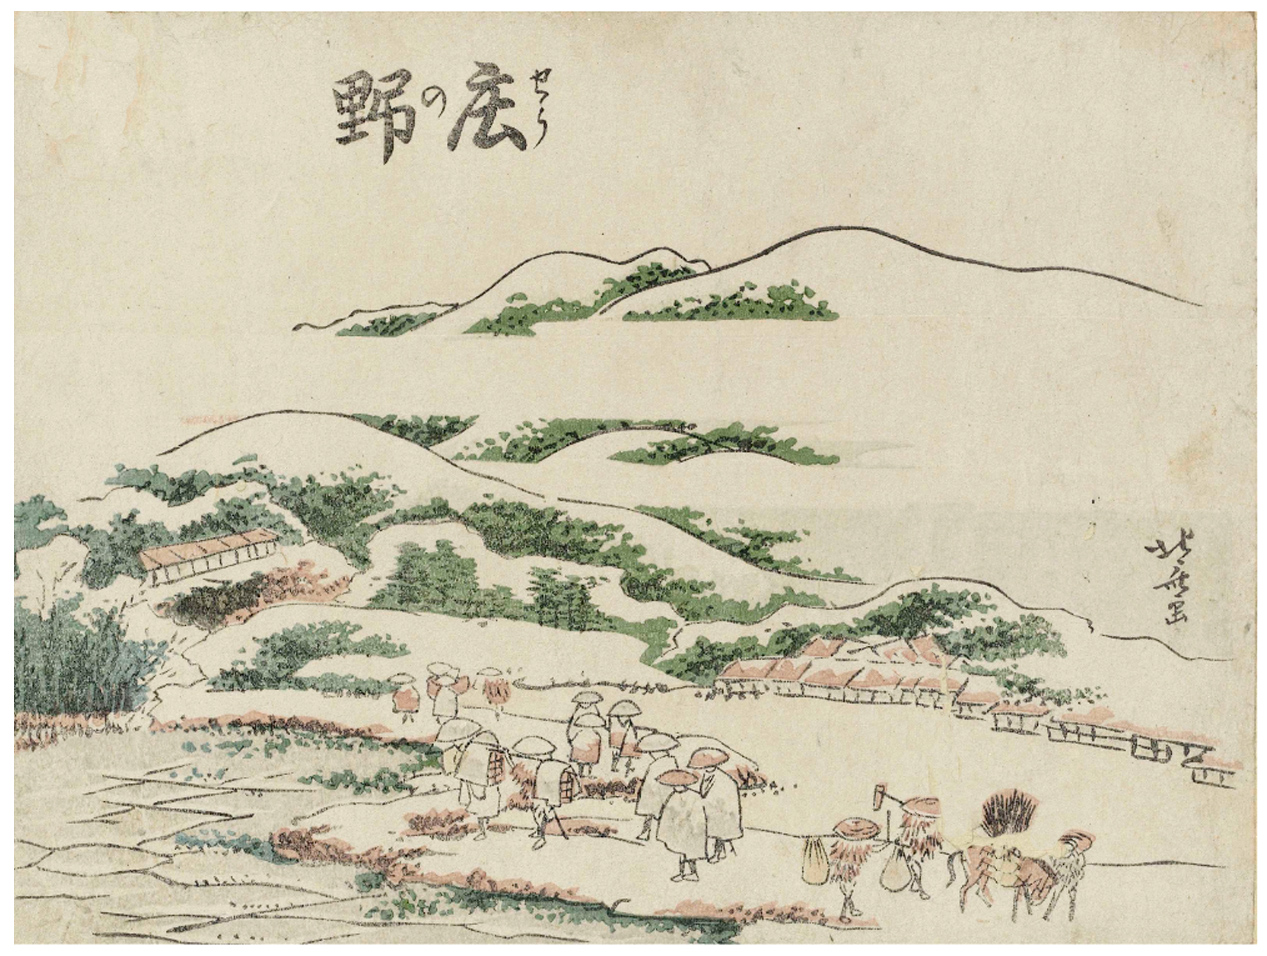 庄の野
せう
北斎画